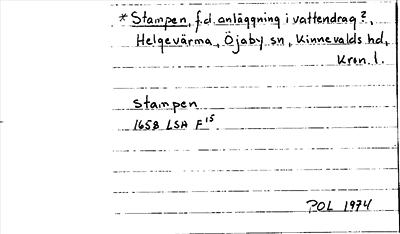 * Stampen, f.d. anläggning i vattendrag?,
Helgevärma, Öjaby sn, Kinnevalds hd,
Kron. l.
Stampen
1658 LSA F 15
POL 1974